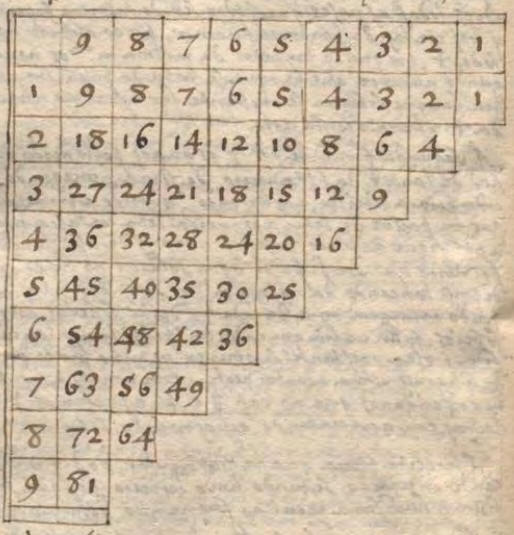 9 8 7 6 5 4 3 2 1
1 9 8 7 6 5 4 3 2 1
2 18 16 14 12 10 8 6 4
3 27 24 21 18 15 12 9
4 36 32 28 24 20 16
5 45 40 35 30 25
6 54 48 42 36
7 63 56 49
8 72 64
9 81